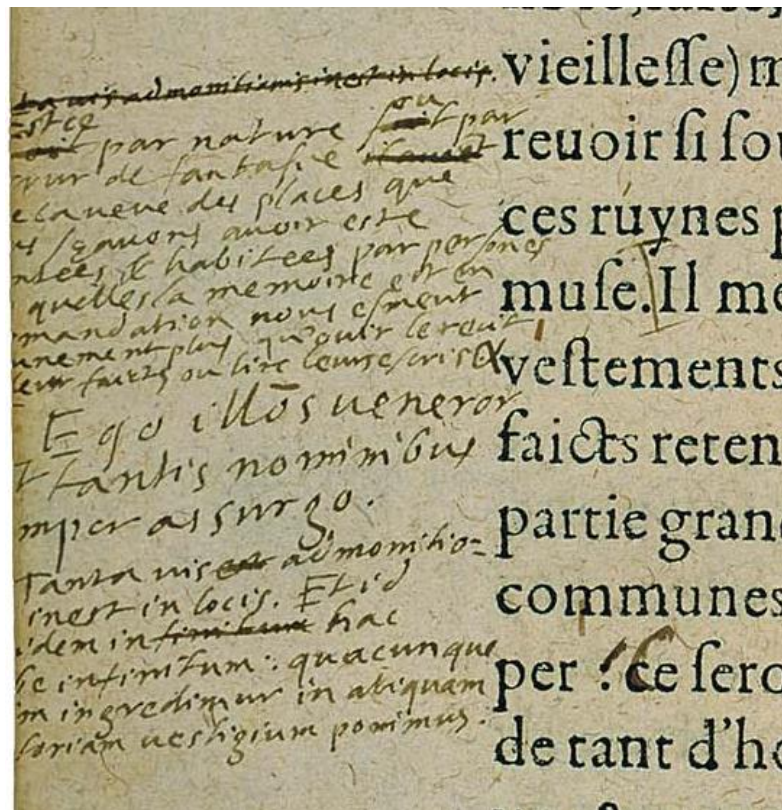 ta uis admonitionis inest in locis.
Est ce
ou
par nature soit par
rrur de fantasie
e la veue des places que
us sçavons avoir este
ntees & habitees par persones
quelles la memoire est en
mmandation nous esmeut
unement plus qu'ouir le recit
leurs faicts ou lire leurs escris
Ego illos ueneror
t tantis nominibus
mper assurgo.
Tanta uis admonitio-
inest in locis. Et id
idem in hac
be infinitum: quacunque
im ingredimur in aliquam
toriam uestigium ponimus.
vieilleſſe) m
reuoir ſi ſou
ces ruynes p
muſe. Il me
veſtements
faicts reten
partie grand
communes
per ! ce ſero
de tant d'ho